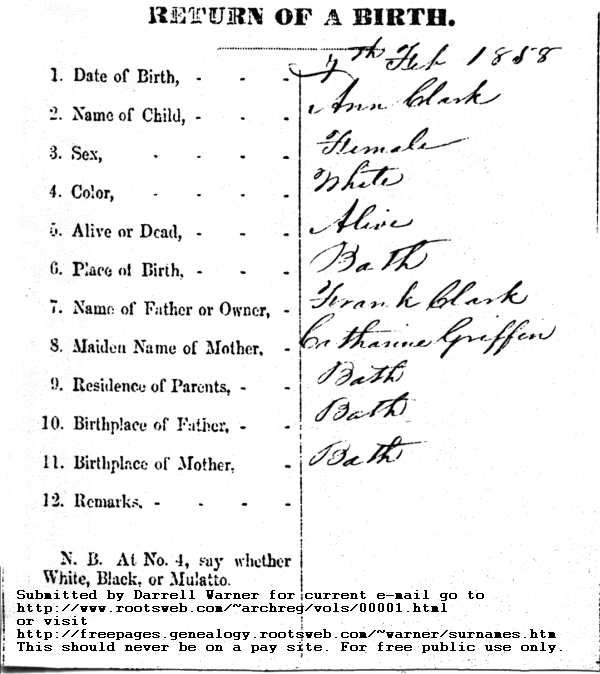 RETURN OF A BIRTH.
1. Date of Birth, - - - 7th Feb 1858
2. Name of Child, - - - Ann Clark
3. Sex, - - - - Female
4. Color, - - - - White
5. Alive or Dead, - - - Alive
6. Place of Birth, - - - Bath
7. Name of Father or Owner, - Frank Clark
8. Maiden Name of Mother, - Catharine Griffin
9. Residence of Parents, - - Bath
10. Birthplace of Father, - - Bath
11. Birthplace of Mother, - Bath
12. Remarks, - - - -
N. B. At No. 4, say whether
White, Black, or Mulatto.
Submitted by Darrell Warner for current e-mail go to
http://www.rootsweb.com/~archreg/vols/00001.html
or visit
http://freepages.genealogy.rootsweb.com/~warner/surnames.htm
This should never be on a pay site. For free public use only.